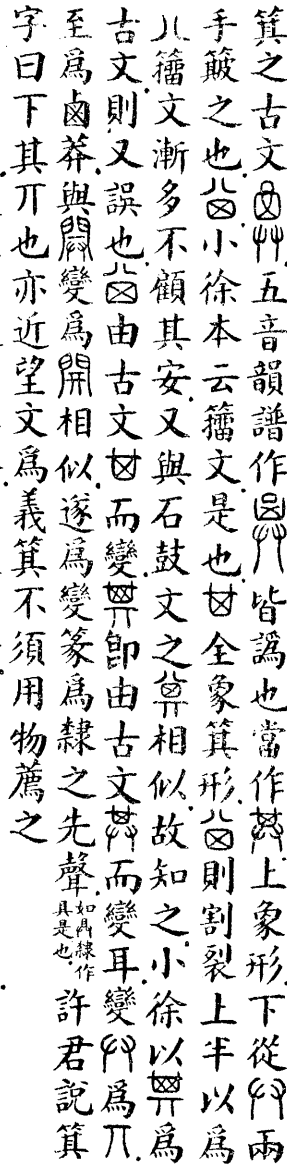 箕之古文五音韻譜作皆譌也當作上象形下從兩
手簸之也小徐本云籀文是也全象箕形則割裂上半以爲
八籀文漸多不顧其安又與石鼓文之相似故知之小徐以爲
古文則又誤也由古文而變卽由古文而變耳變爲
至爲鹵莽與䦕變爲開相似遂爲變篆爲隸之先聲如鼎隸作具是也許君說箕
字曰下其丌也亦近望文爲義箕不須用物薦之